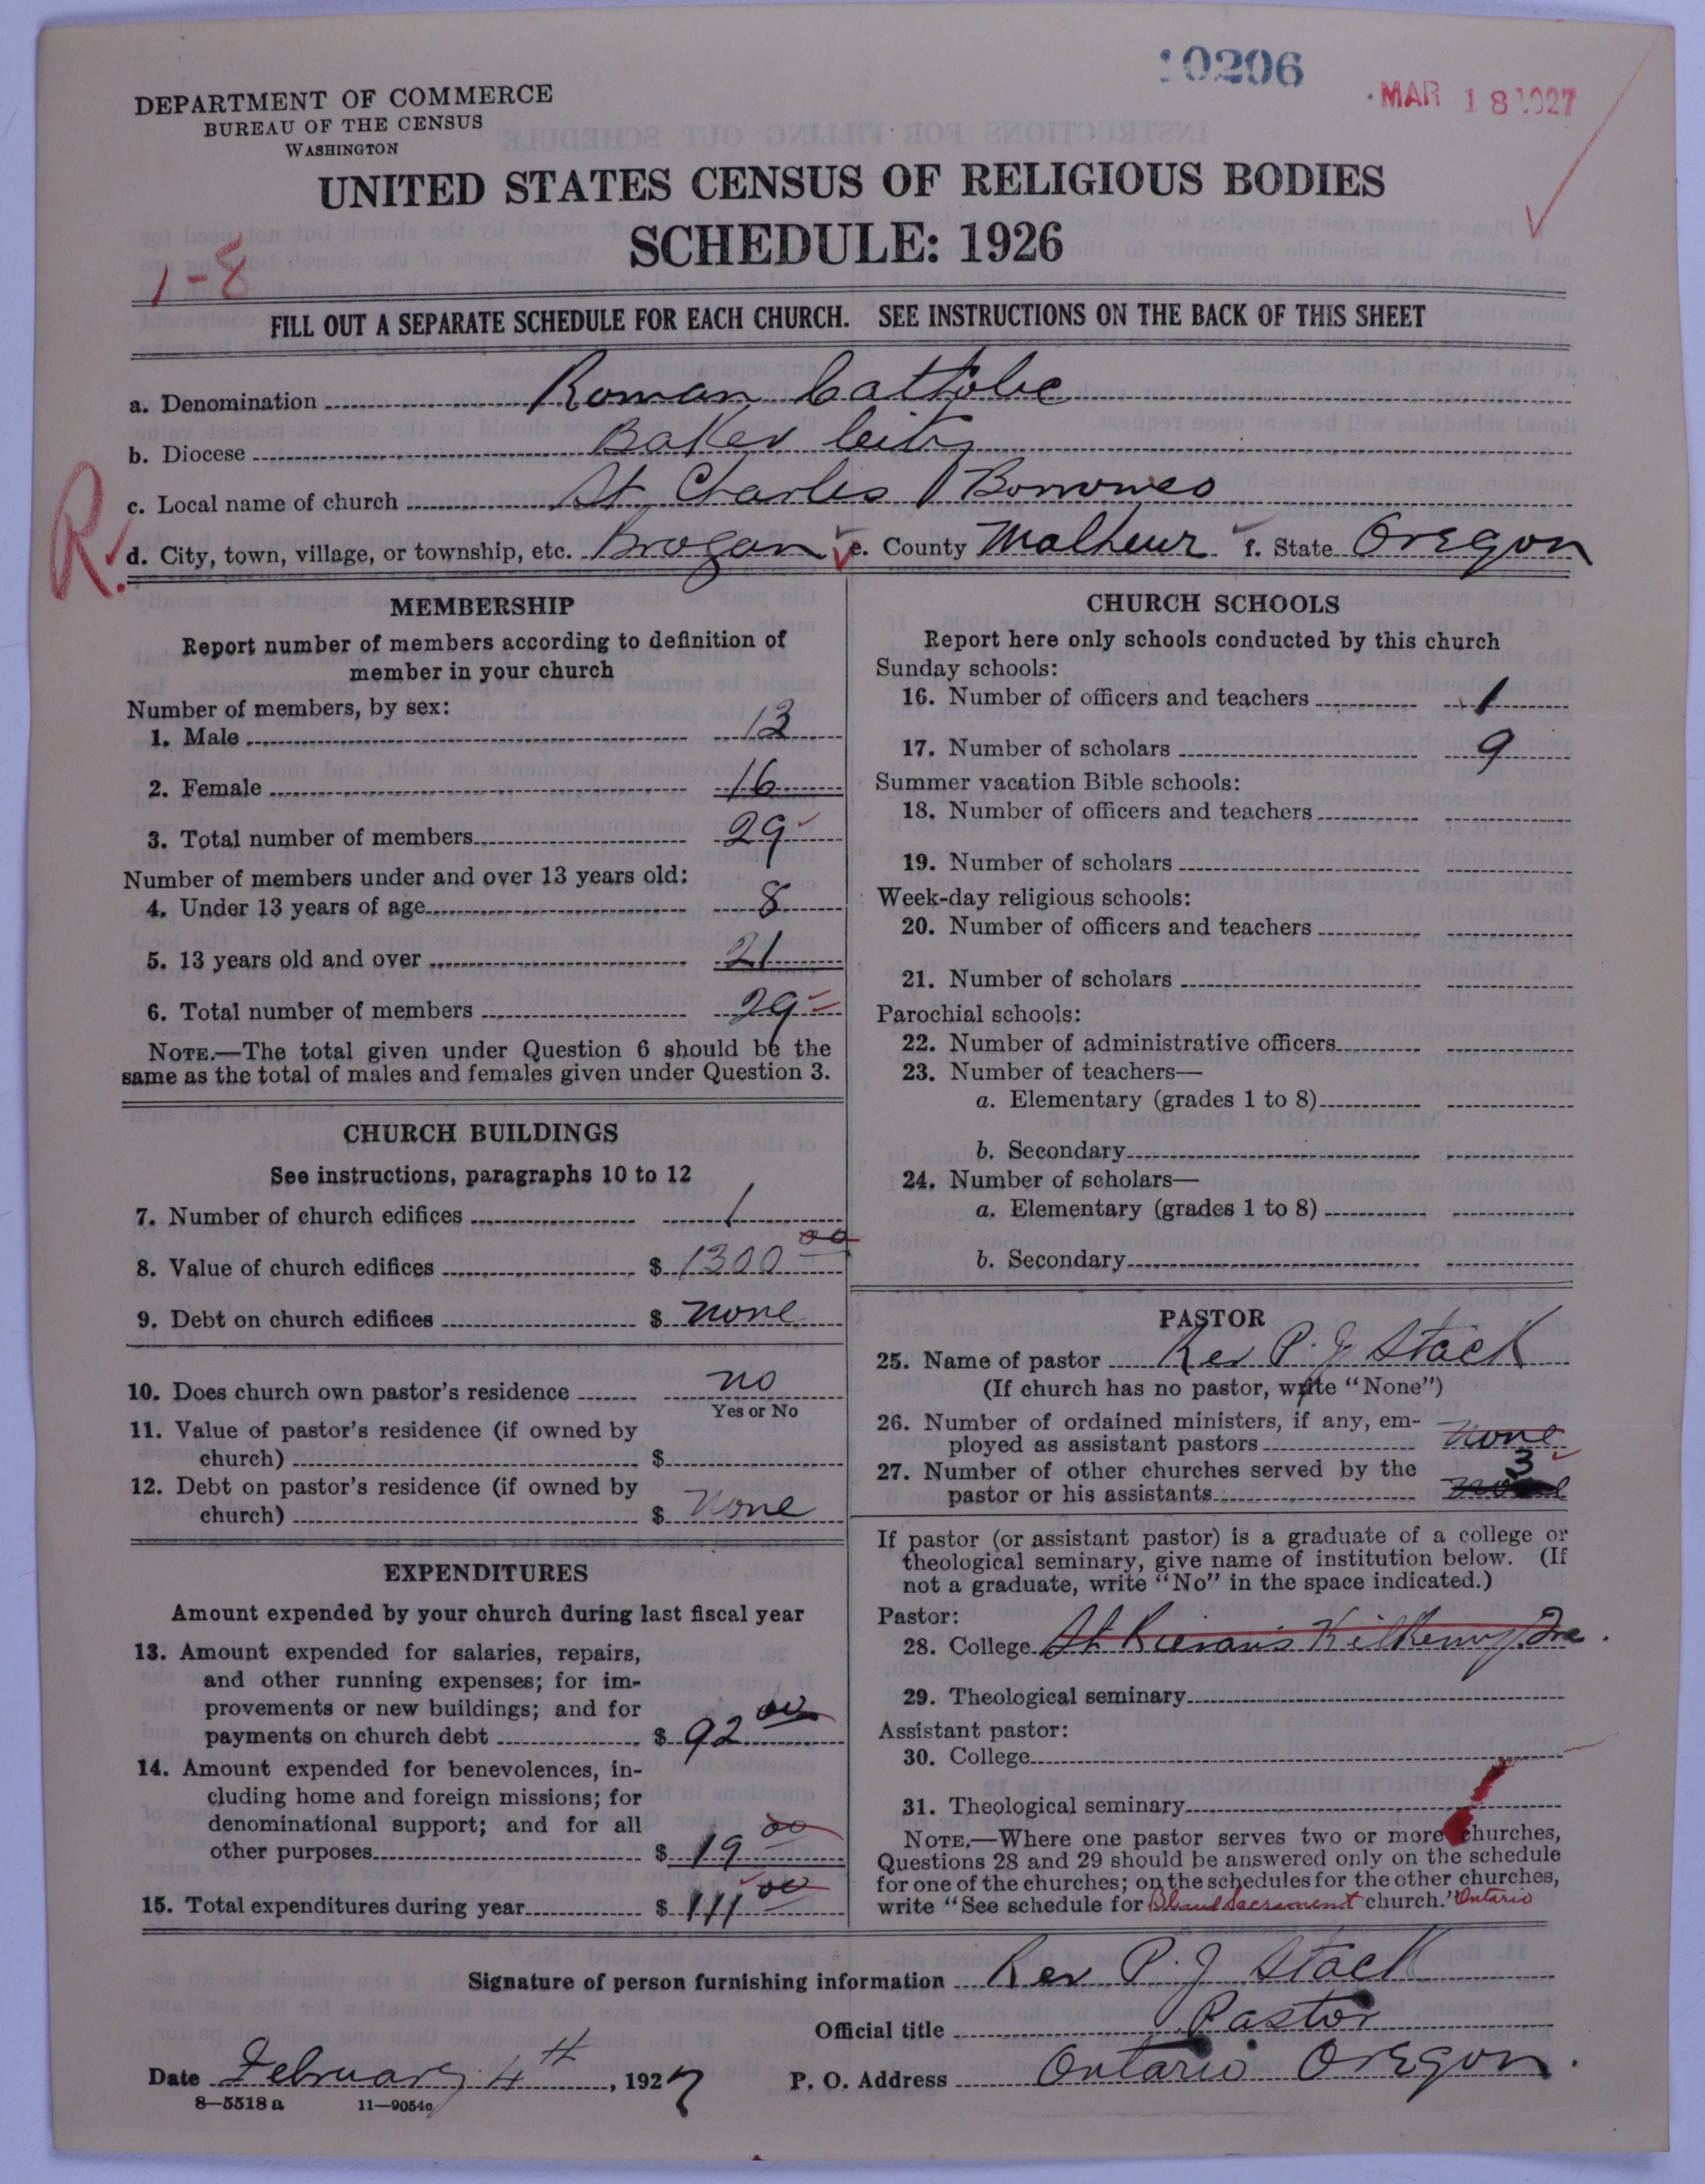 10206
MAR 18 1927
DEPARTMENT OF COMMERCE
BUREAU OF THE CENSUS
WASHINGTON
UNITED STATES CENSUS OF RELIGIOUS BODIES
SCHEDULE: 1926
1-8
FILL OUT A SEPARATE SCHEDULE FOR EACH CHURCH. SEE INSTRUCTIONS ON THE BACK OF THIS SHEET
a. Denomination Roman Catholic
b. Diocese Baker City
c. Local name of church St Charles Borromeo
R.
d. City, town, village, or township, etc. Brogan e. County Malheur f. State Oregon
MEMBERSHIP
Report number of members according to definition of
member in your church
Number of members, by sex:
1. Male 13
2. Female 16
3. Total number of members 29
Number of members under and over 13 years old:
4. Under 13 years of age 8
5. 13 years old and over 21
6. Total number of members 29
NOTE.—The total given under Question 6 should be the
same as the total of males and females given under Question 3.
CHURCH BUILDINGS
See instructions, paragraphs 10 to 12
7. Number of church edifices 1
8. Value of church edifices $ 1300 00
9. Debt on church edifices $ none
10. Does church own pastor's residence no
Yes or No
11. Value of pastor's residence (if owned by
church) $
12. Debt on pastor's residence (if owned by
church) $ none
EXPENDITURES
Amount expended by your church during last fiscal year
13. Amount expended for salaries, repairs,
and other running expenses; for im-
provements or new buildings; and for
payments on church debt $ 92 00
14. Amount expended for benevolences, in-
cluding home and foreign missions; for
denominational support; and for all
other purposes $ 19 00
15. Total expenditures during year $ 111 00
CHURCH SCHOOLS
Report here only schools conducted by this church
Sunday schools:
16. Number of officers and teachers 1
17. Number of scholars 9
Summer vacation Bible schools:
18. Number of officers and teachers
19. Number of scholars
Week-day religious schools:
20. Number of officers and teachers
21. Number of scholars
Parochial schools:
22. Number of administrative officers
23. Number of teachers—
a. Elementary (grades 1 to 8)
b. Secondary
24. Number of scholars—
a. Elementary (grades 1 to 8)
b. Secondary
PASTOR
25. Name of pastor Rev P. J Stack
(If church has no pastor, write "None")
26. Number of ordained ministers, if any, em-
ployed as assistant pastors none
27. Number of other churches served by the 3
pastor or his assistants none
If pastor (or assistant pastor) is a graduate of a college or
theological seminary, give name of institution below. (If
not a graduate, write "No" in the space indicated.)
Pastor:
28. College St. Kieran's Kilkenny Ire.
29. Theological seminary
Assistant pastor:
30. College
31. Theological seminary
NOTE.—Where one pastor serves two or more churches,
Questions 28 and 29 should be answered only on the schedule
for one of the churches; on the schedules for the other churches,
write "See schedule for Blessed Sacrament church." Ontario
Signature of person furnishing information Rev P. J Stack
Official title Pastor
Date February 4th, 1927 P. O. Address Ontario Oregon.
8—5518 a 11—9054c